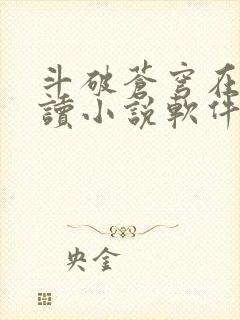 斗破蒼穹在
讀小說軟件
央金